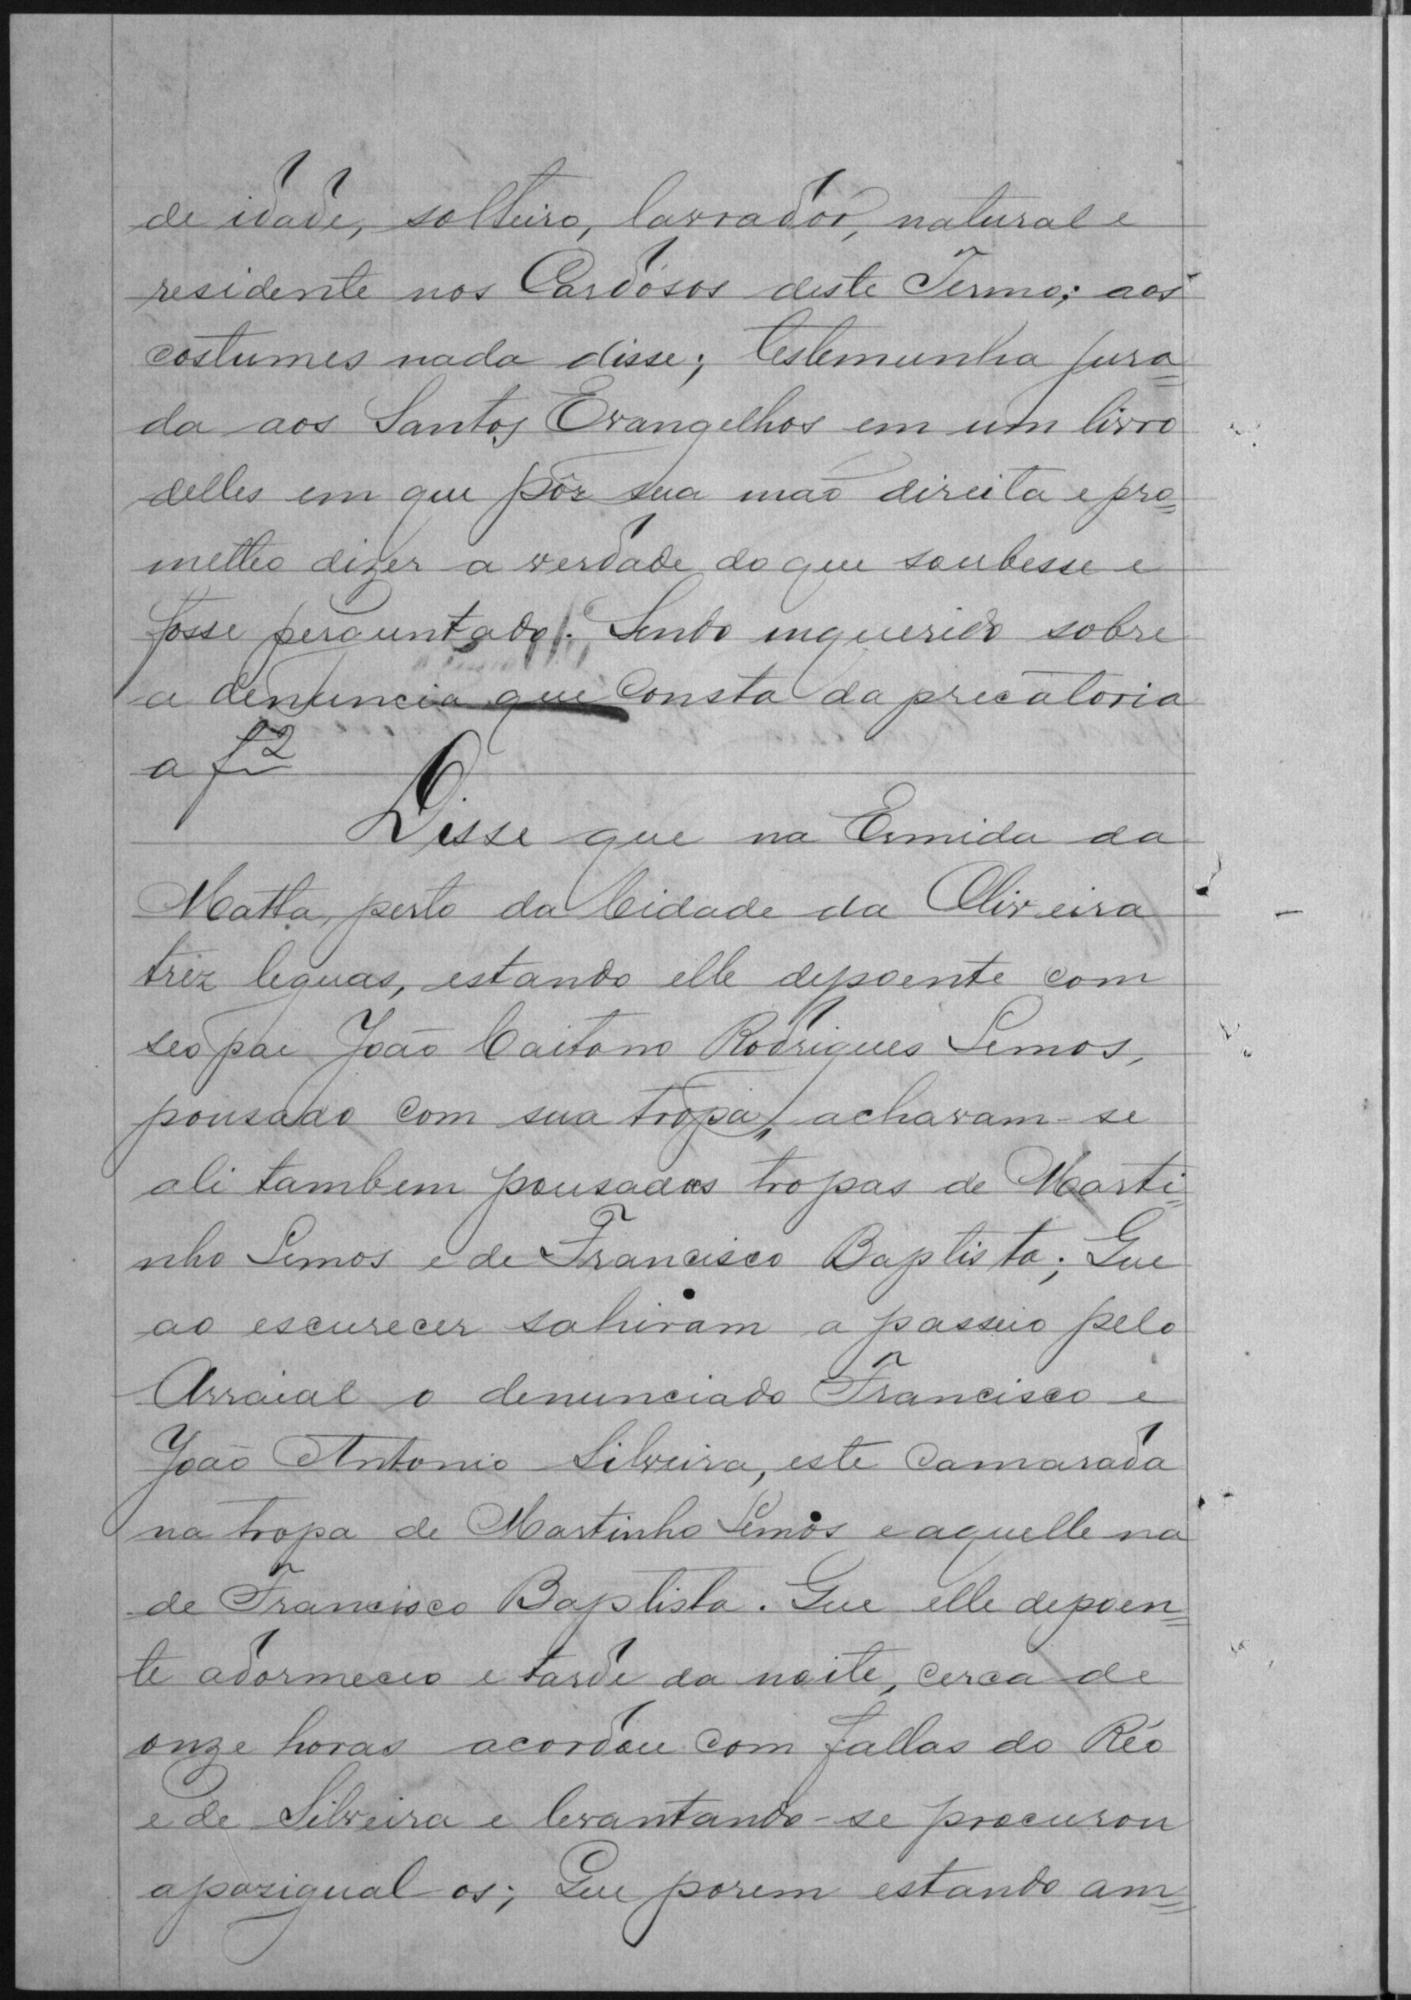 de idade, solteiro, lavrador, natural e
residente nos Cardósos deste Termo; aos
costumes nada disse; testemunha jura=
da aos Santos Evangelhos em um livro
delles em que pôz sua mão direita e pro=
metteo dizer a verdade do que soubesse e
fosse perguntado. Sendo inquerido sobre
a denuncia que consta da precatoria
a f 2
Disse que na Ermida da
Matta, perto da Cidade da Oliveira
trez leguas, estando elle depoente com
seo pai João Caitano Rodrigues Lemos,
pousado com sua tropa, achavam-se
ali tambem pousadas tropas de Marti=
nho Lemos e de Francisco Baptista; Que
ao escurecer sahiram a passeio pelo
Arraial o denunciado Francisco e
João Antonio Silveira, este camarada
na tropa de Martinho Lemos e aquelle na
de Francisco Baptista. Que elle depoen=
te adormeceo e tarde da noite, cerca de
onze horas acordou com fallas do Réo
e de Silveira e levantando-se procurou
apazigual os; Que porem estando am=